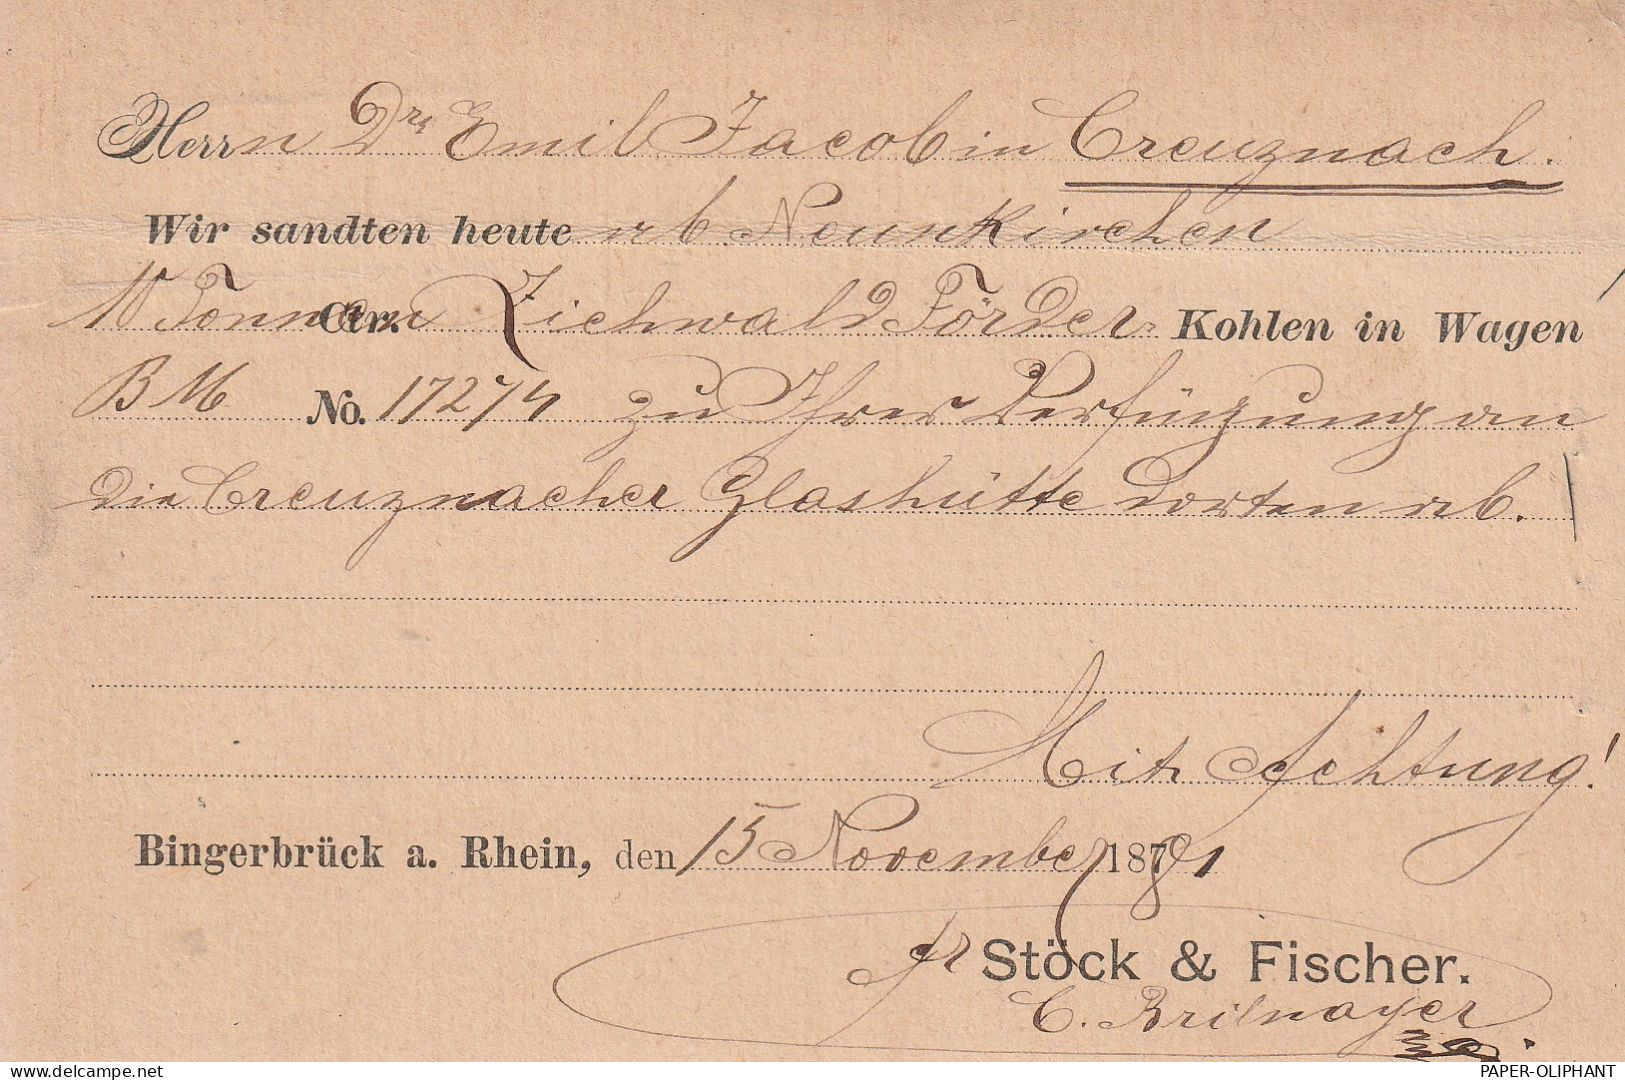 Herrn Dr. Emil Jacob in Creuznach.
Wir sandten heute ab Neunkirchen
10 Tonnen Ctr. Ziehwald Förder Kohlen in Wagen
BM No. 17274 zu Ihrer Verfügung an
die Creuznacher Glashütte dorten ab.
Mit Achtung!
Bingerbrück a. Rhein, den 15 November 1881
pr Stöck & Fischer.
C. Brilmayer
delcampe.net
PAPER-OLIPHANT